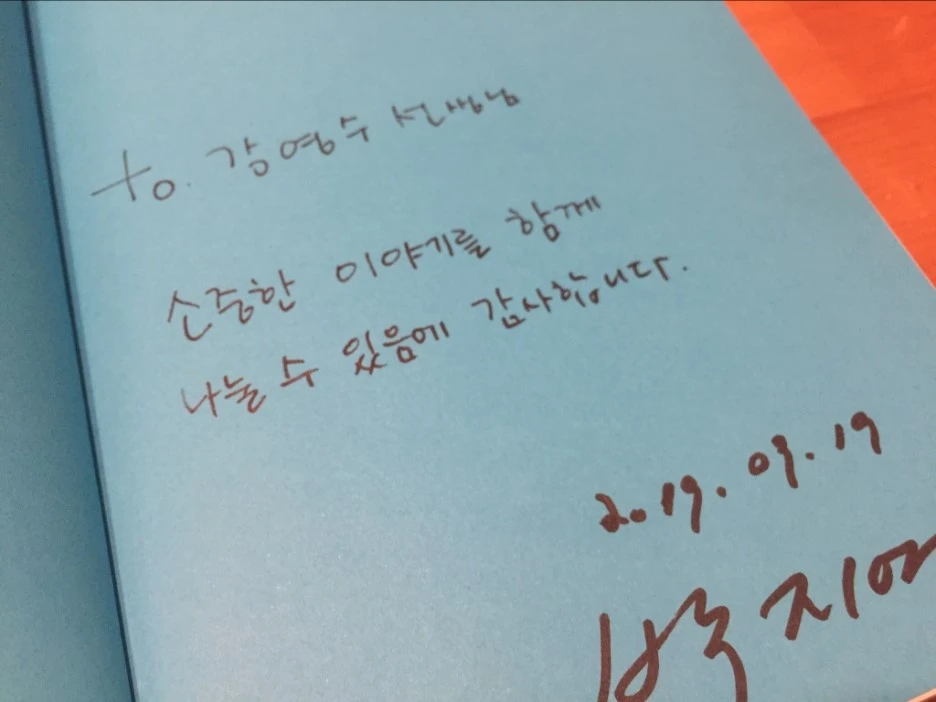 to. 강영수 선생님
소중한 이야기를 함께
나눌 수 있음에 감사합니다.
2019. 09. 19